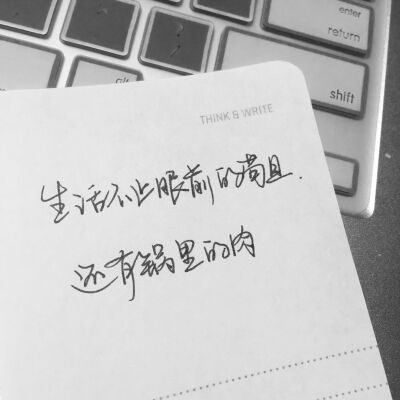 enter
return
alt
shift
THINK & WRITE
生活不止眼前的苟且.
还有锅里的肉